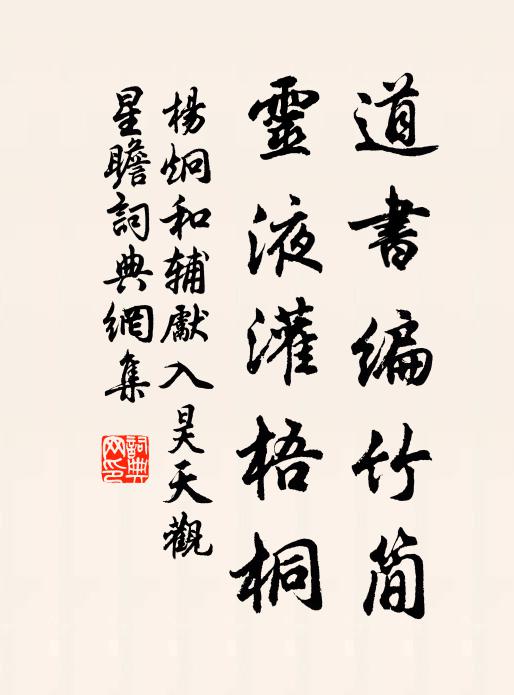 道書編竹簡
靈液灌梧桐
楊炯和輔獻入昊天觀
星瞻詞典網集
詞典
网印